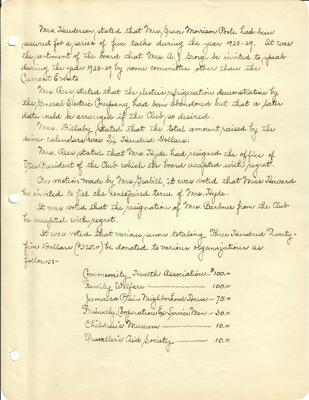 Mrs. Henderson stated that Mrs. Grace Morrison Poole had been
secured for a series of five talks during the year 1928-29. It was
the sentiment of the board that Mrs. A. J. George be invited to speak
during the year 1928-29 by some committee other than the
Current Events.
Mrs. Rees stated that the electric refrigeration demonstration by
the General Electric Company had been abandoned but that a later
date could be arranged if the Club so desired.
Mrs. Billaby stated that the total amount raised by the
dime calendars was Six Hundred Dollars.
Mrs. Rees stated that Mrs. Hyde had resigned the office of
Vice President of the Club which the board accepted with regret.
On motion made by Mrs. Grabill, it was voted that Miss Howard
be invited to fill the unexpired term of Mrs. Hyde.
It was voted that the resignation of Mrs. Barbour from the Club
be accepted with regret.
It was voted that various sums totaling Three Hundred Twenty-
five Dollars ($325.00) be donated to various organizations as
follows:-
Community Health Association $100.=
Family Welfare 100.=
Jamaica Plain Neighborhood House - 75.=
Friendly Cooperation Ex-Service Men - 30.=
Children's Museum 10.=
Traveller's Aid Society - 10.=